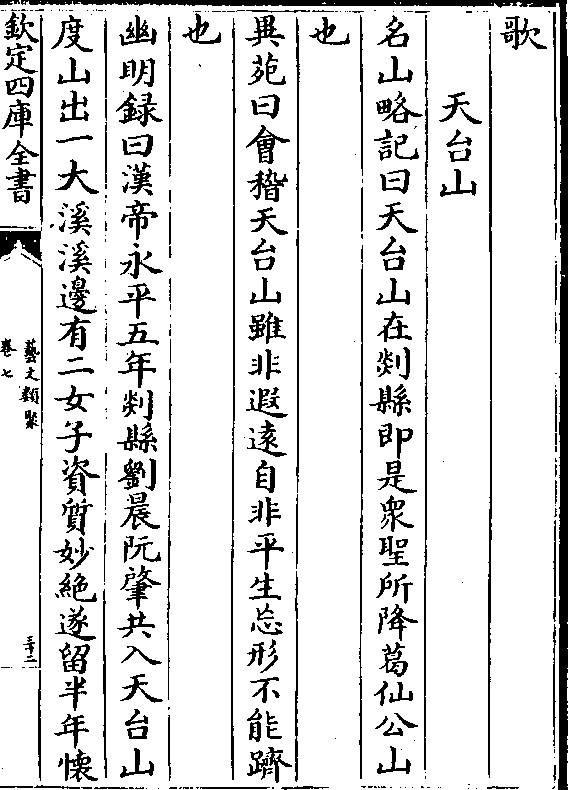 歌
天台山
名山略記曰天台山在剡縣即是衆聖所降葛仙公山
也
異苑曰會稽天台山雖非遐遠自非平生忘形不能躋
也
幽明録曰漢帝永平五年剡縣劉晨阮肇共入天台山
度山出一大溪溪邊有二女子資質妙絶遂留半年懐
欽定四庫全書
藝文類聚
卷七
三十二